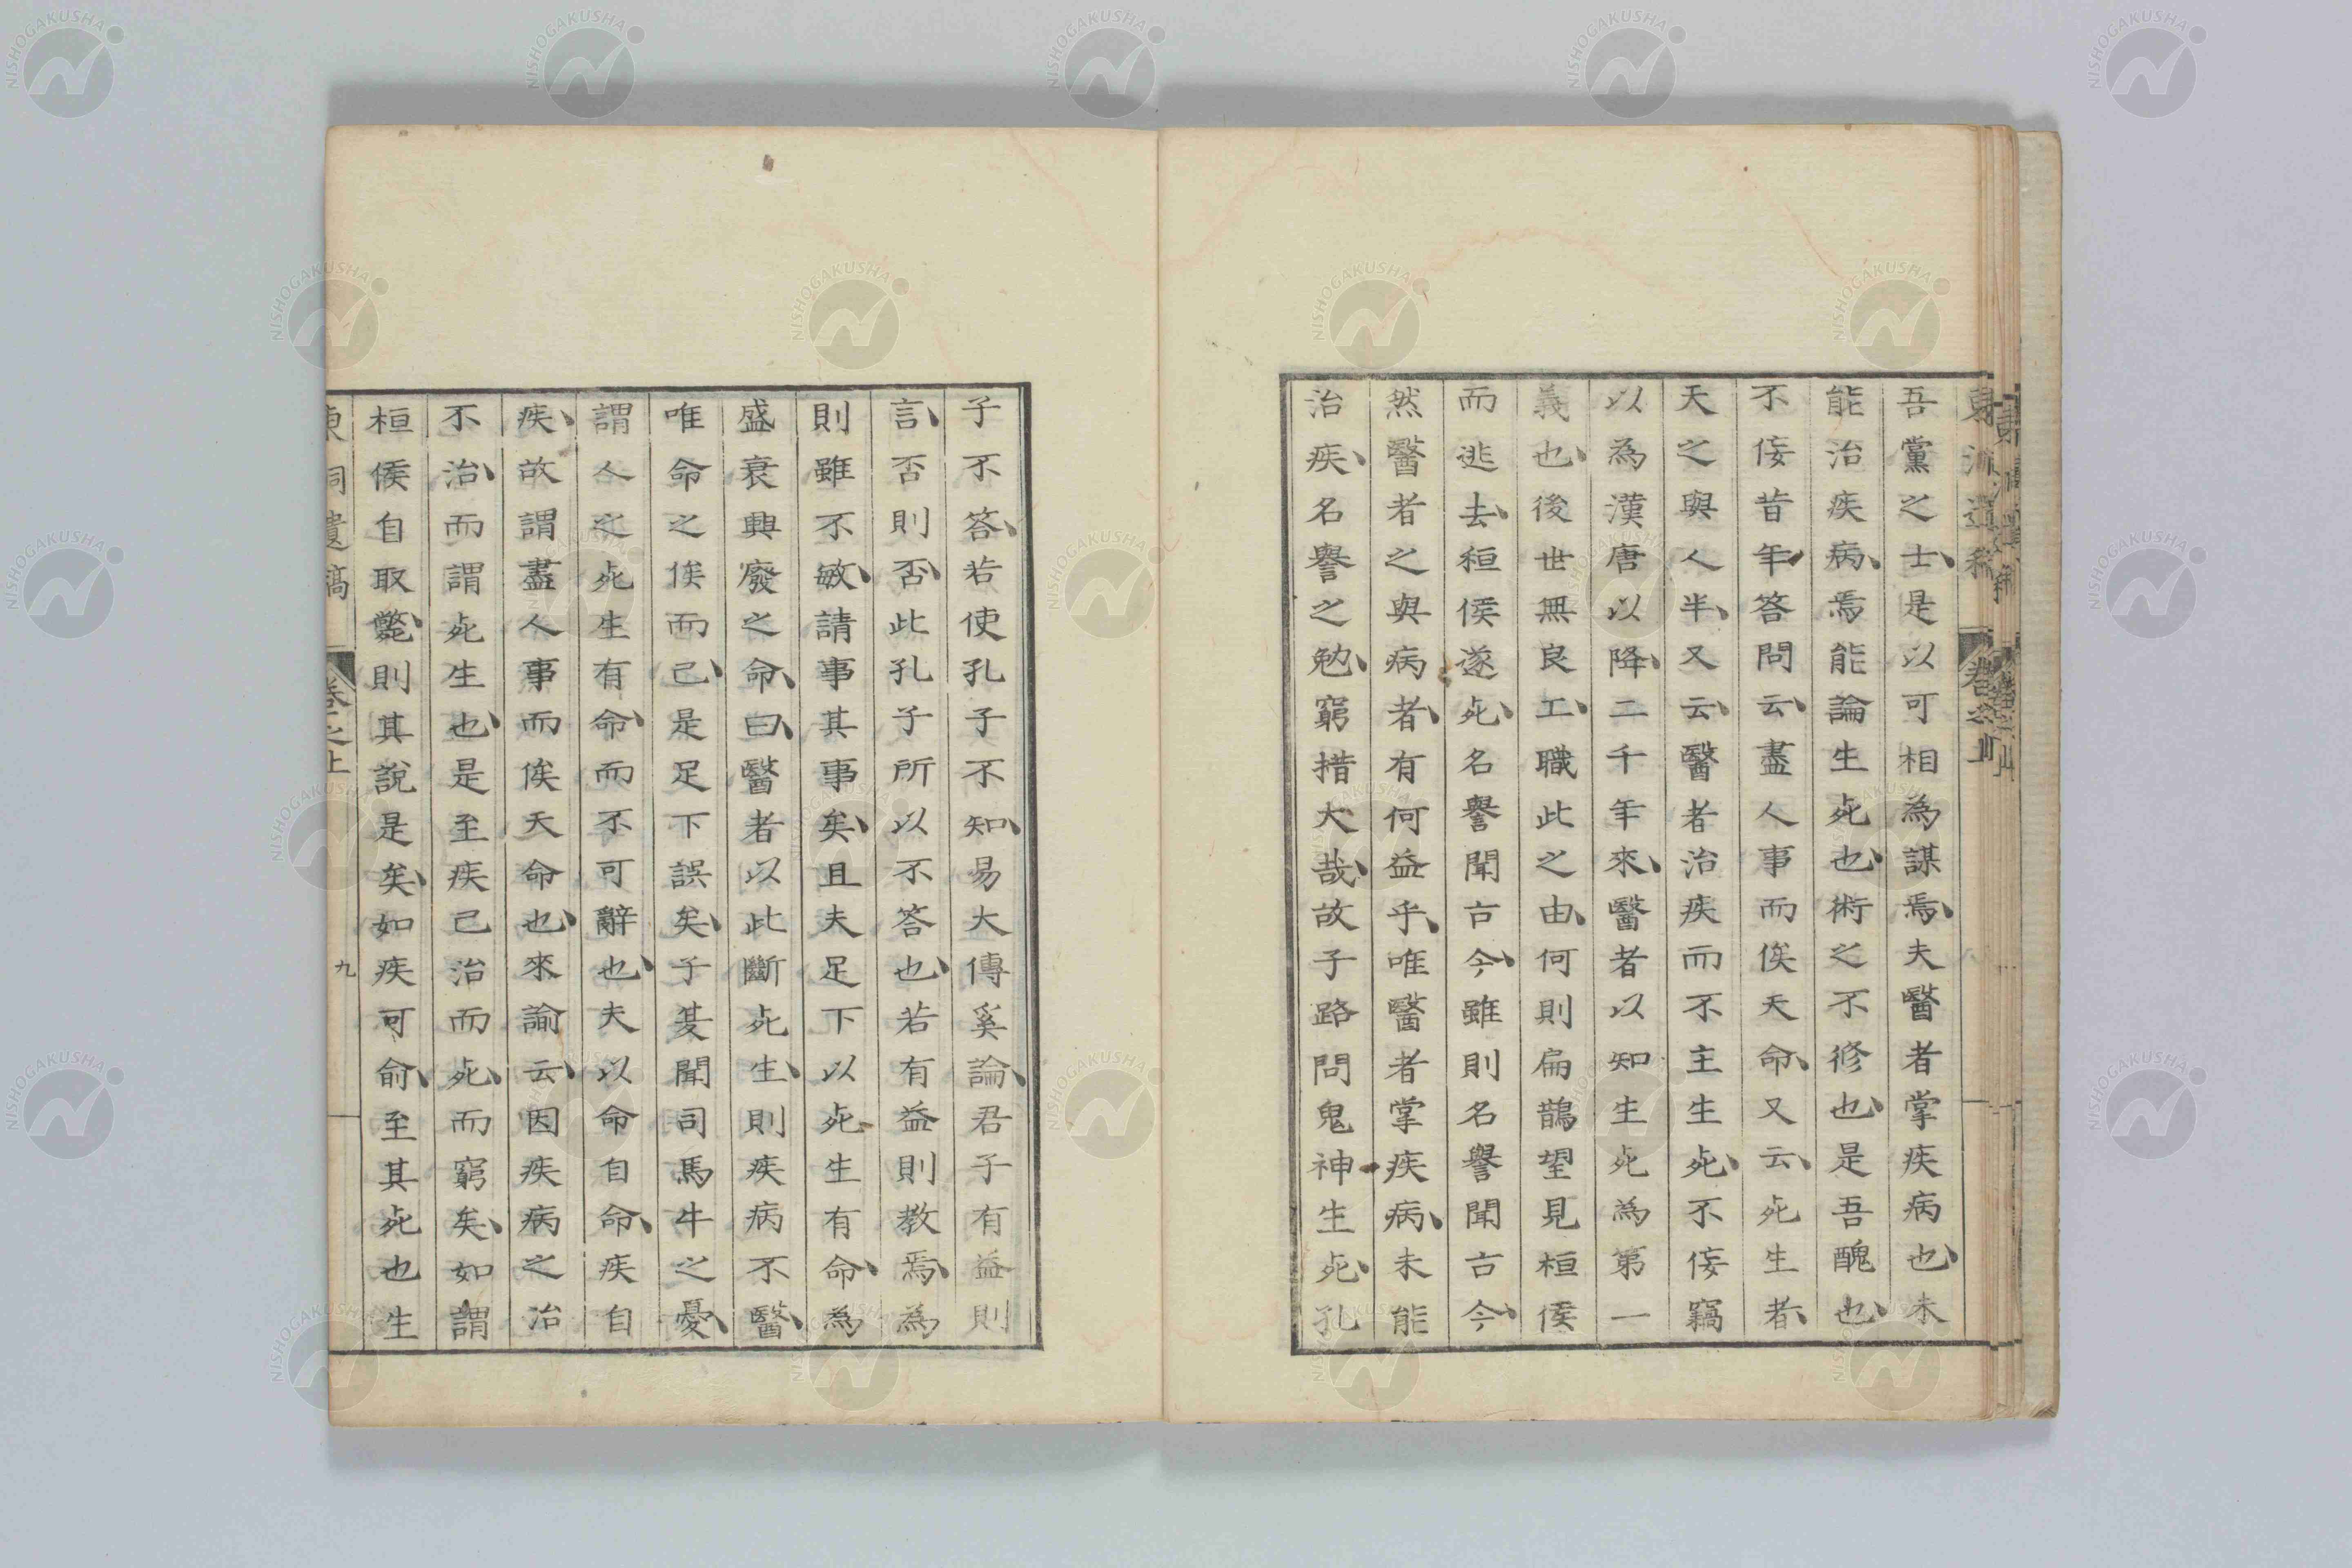 吾黨之士、是以可相為謀焉、夫醫者掌疾病也、未
能治疾病、焉能論生死也、術之不修也、是吾醜也、
不侫昔年答問云、盡人事而俟天命、又云、死生者、
天之與人半、又云、醫者治疾而不主生死、不侫竊
以為漢唐以降、二千年來、醫者以知生死為第一
義也、後世無良工、職此之由、何則扁鵲望見桓侯
而逃去、桓侯遂死、名譽聞古今、雖則名譽聞古今、
然醫者之與病者、有何益乎、唯醫者掌疾病、未能
治疾、名譽之勉、窮措大哉、故子路問鬼神生死、孔
子不答、若使孔子不知、易大傳奚論、君子有益則
言、否則否、此孔子所以不答也、若有益則教焉、為
則雖不敏、請事其事矣、且夫足下以死生有命、為
盛衰興廢之命、曰、醫者以此斷死生、則疾病不醫、
唯命之俟而已、是足下誤矣、子芰聞司馬牛之憂、
謂人之死生有命、而不可辭也、夫以命自命、疾自
疾、故謂盡人事而俟天命也、來諭云、因疾病之治
不治、而謂死生也、是至疾已治而死、而窮矣、如謂
桓侯自取斃、則其說是矣、如疾可俞、至其死也生
東洞遺稿
卷之上
九
NISHOGAKUSHA